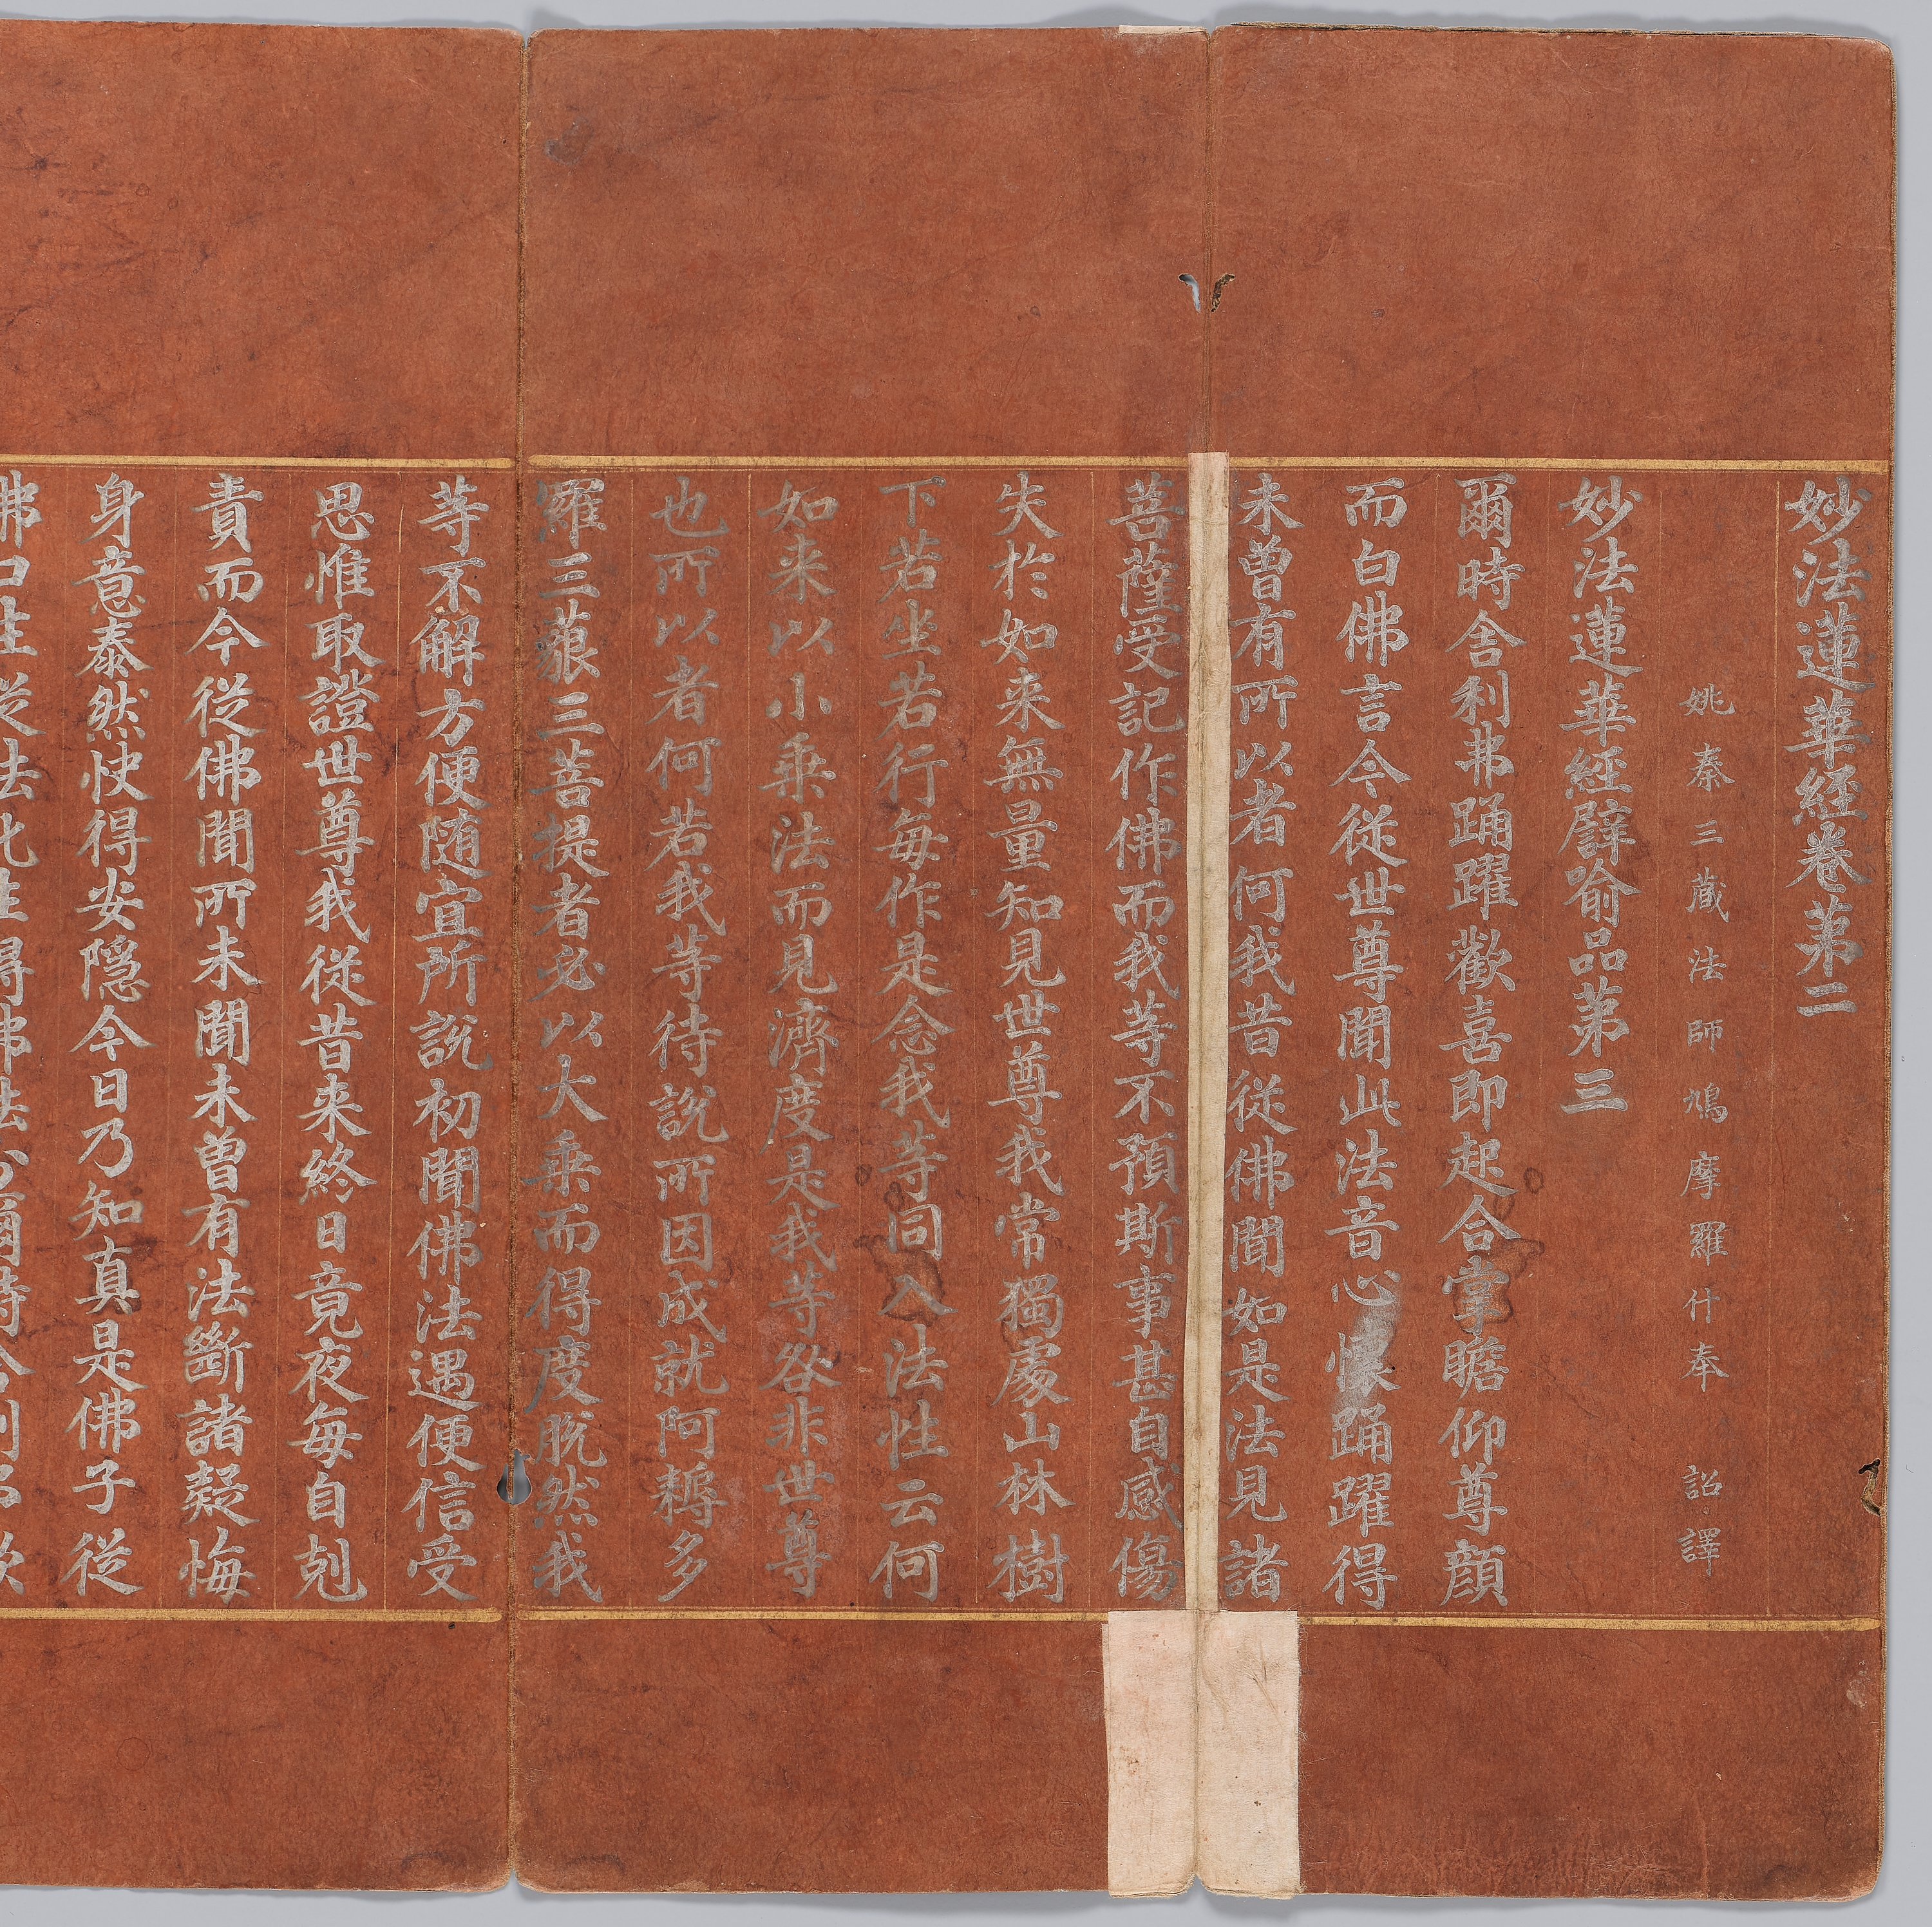 妙法蓮華經卷第二
姚秦三藏法師鳩摩羅什奉　詔譯
妙法蓮華經譬喻品第三
爾時舍利弗踊躍歡喜即起合掌瞻仰尊顔
而白佛言今從世尊聞此法音心懷踊躍得
未曾有所以者何我昔從佛聞如是法見諸
菩薩受記作佛而我等不預斯事甚自感傷
失於如来無量知見世尊我常獨處山林樹
下若坐若行每作是念我等同入法性云何
如来以小乘法而見濟度是我等咎非世尊
也所以者何若我等待說所因成就阿耨多
羅三藐三菩提者必以大乘而得度脫然我
等不解方便随宜所說初聞佛法遇便信受
思惟取證世尊我從昔来終日竟夜每自剋
責而今從佛聞所未聞未曾有法斷諸疑悔
身意泰然快得安隱今日乃知真是佛子從
佛口生從法化生得佛法分爾時舍利弗欲